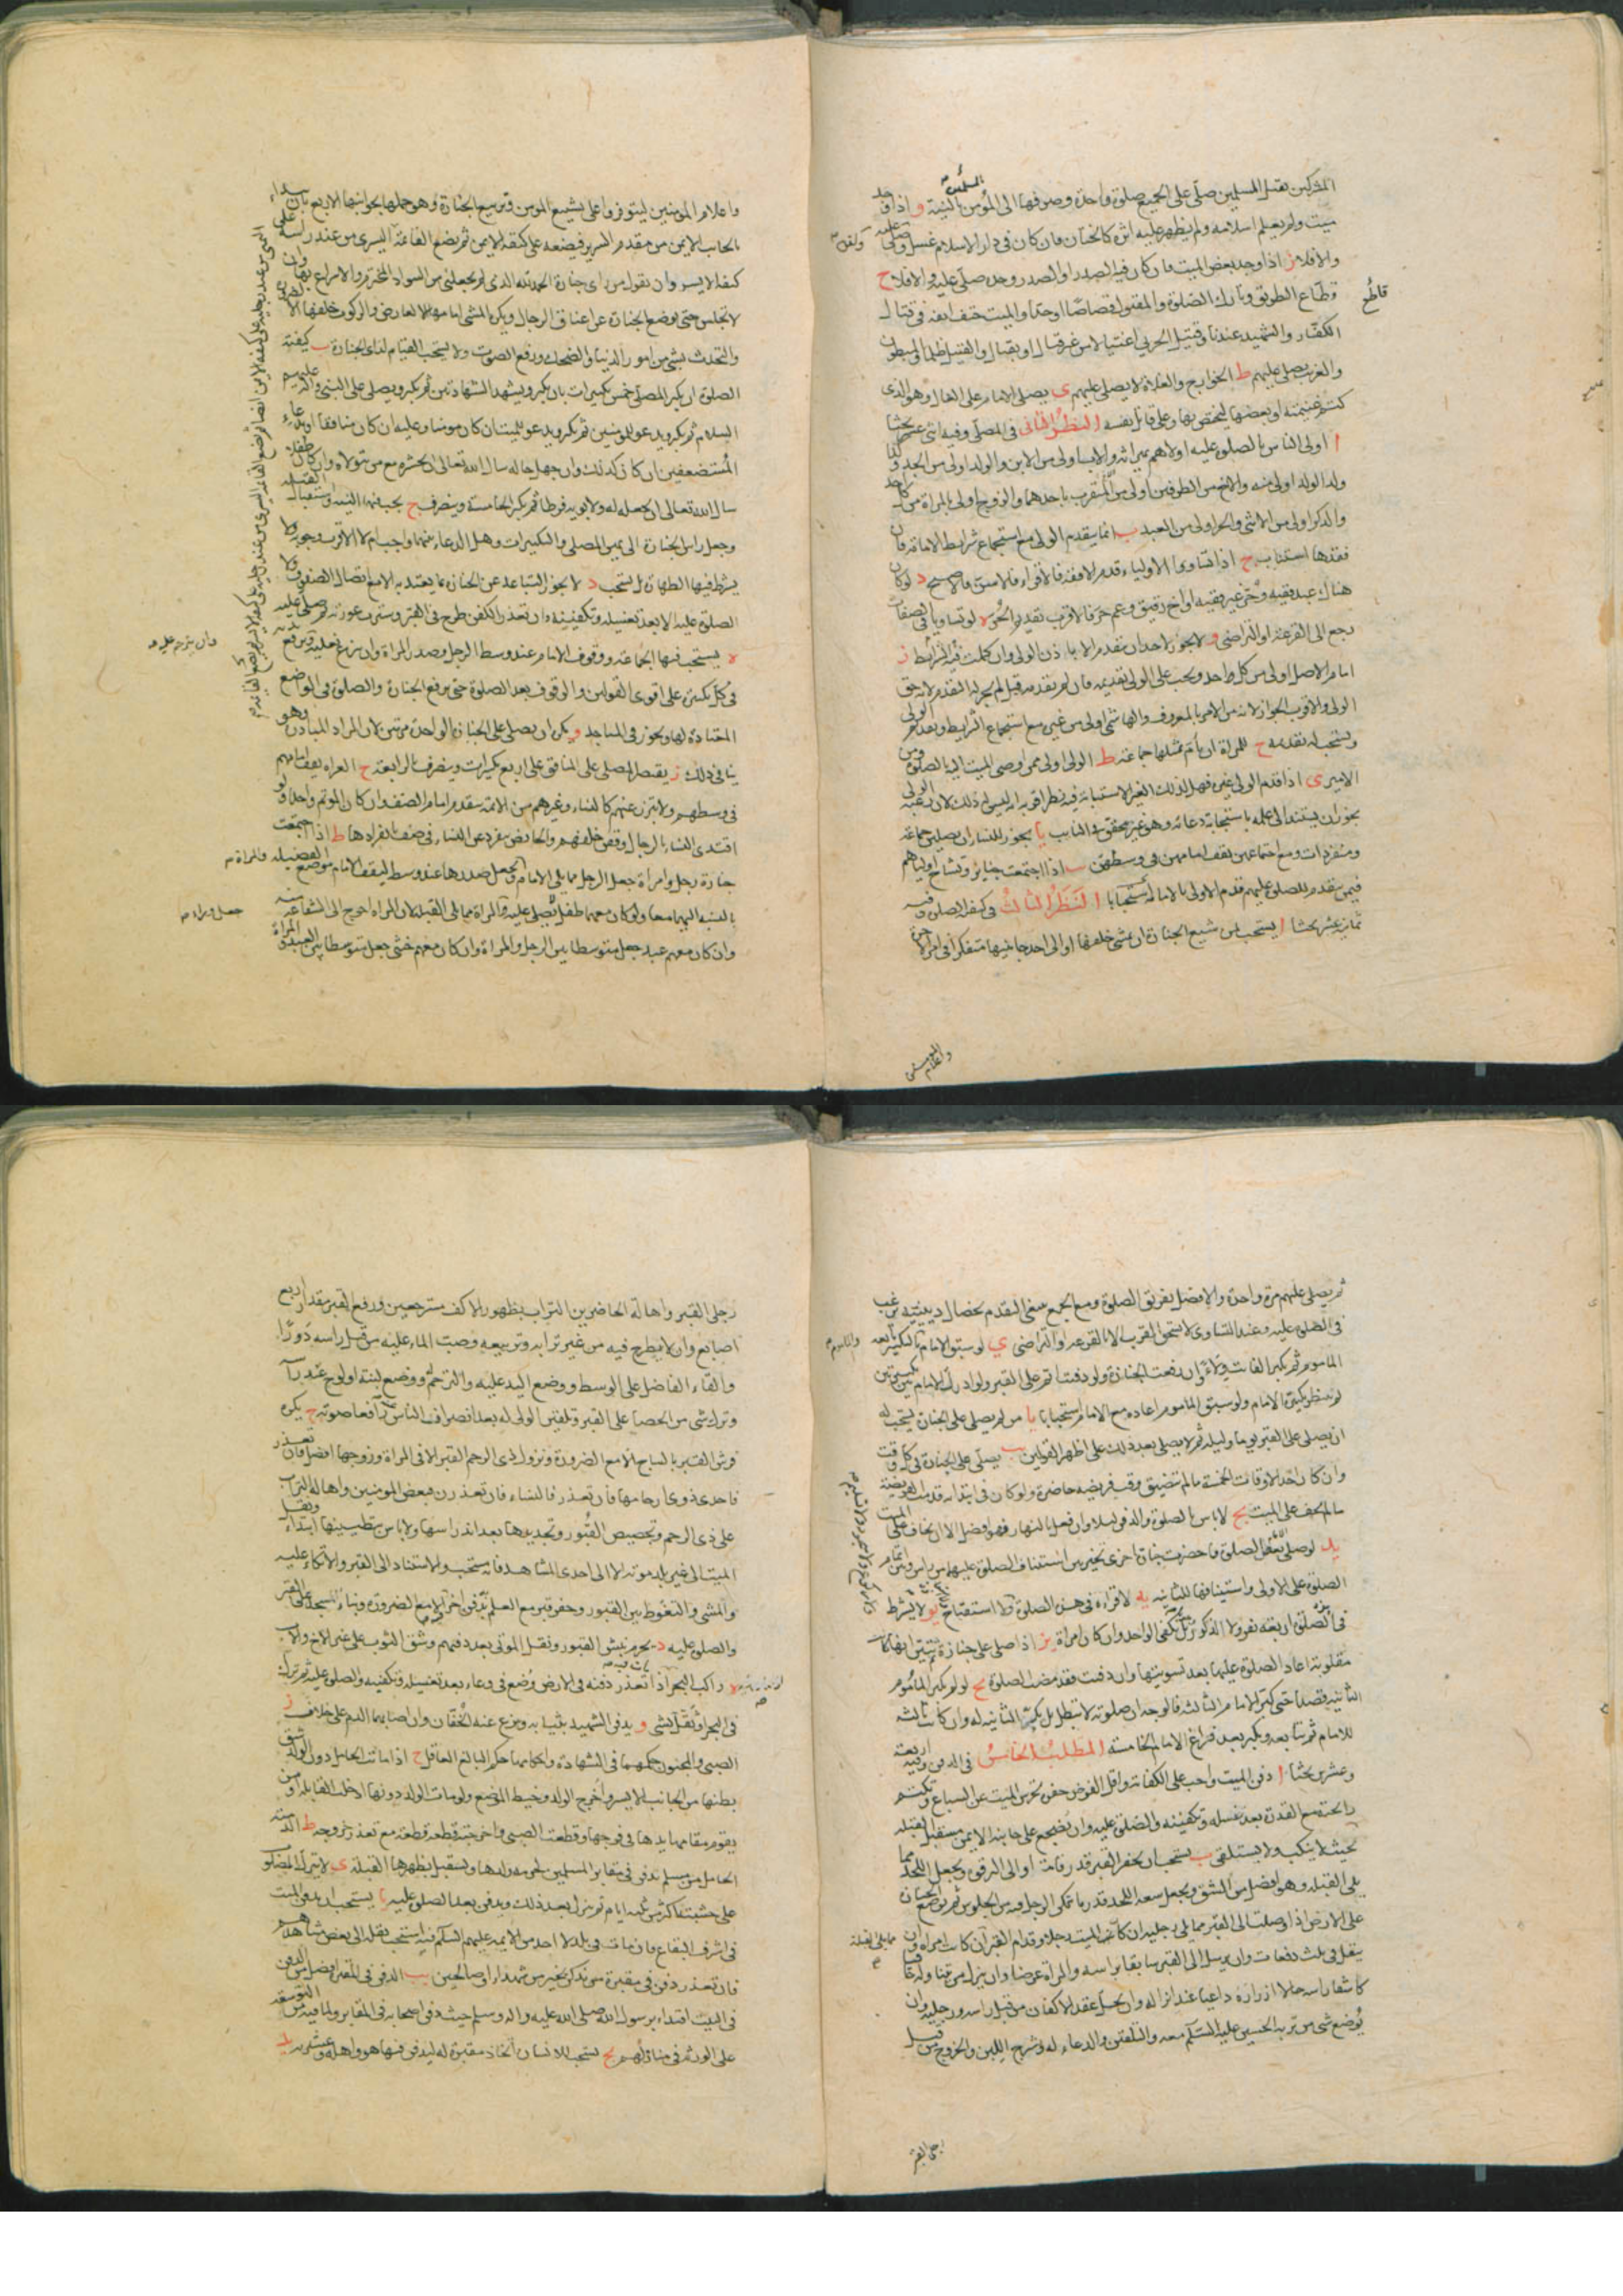 المشركين بقتل المسلمين صلى على الجميع صلوة واحدة وصرفها الى المؤمن بالنية و اذا وجد
ميت ولم يعلم اسلامه ولم يظهر عليه اثره كالختان فان كان في دار الاسلام غسل وصلى عليه
والا فلا ز اذا وجد بعض الميت فان كان فيه الصدر او الصدر وحده صلى عليه والا فلا ح
قطاع الطريق وتارك الصلوة والمقتول قصاصا او حدا والميت حتف انفه في قتال
الكفار والشهيد عندنا وقتيل الحربي اغتيالا من غير قتال او بقتال والقتيل ظلما المبطون
والغريب يصلى عليهم ط الخوارج والغلاة لا يصلى عليهم ى يصلى الامام على الغال وهو الذى
كتم غنيمته او بعضها ليختص بها وعلى قاتل نفسه النظر الثانى فى المصلى وفيه اثنى عشر بحثا
ا اولى الناس بالصلوة عليه اولاهم بميراثه والاب اولى من الابن والولد اولى من الجد وكذا
ولد الولد اولى منه والاخ من الطرفين اولى من المتقرب باحدهما والزوج اولى بالمراة من كل احد
والذكر اولى من الانثى والحر اولى من العبد ب انما يتقدم الولى مع استجماع شرايط الامامة فان
فقدها استناب ج اذا تساوى الاولياء قدم الافقه فالاقراء فالاسن فالاصبح د لو كان
هناك عبد فقيه وحر غير فقيه او اخ رقيق وعم حر فالاقرب تقديم الحر ه لو تساويا فى الصفات
رجع الى القرعة او التراضى و لا يجوز لاحد ان يتقدم الا باذن الولى وان كملت فيه الشرايط ز
امام الاصل اولى من كل واحد ويجب على الولى تقديمه فان لم يقدمه قيل لم يجز له التقدم لانه حق
الولى والاقرب الجواز لانه من الامر بالمعروف والهاشمى اولى من غيره مع استجماع الشرايط وتقديم الولى
ويستحب له تقديمه ح للمراة ان تام مثلها جماعة ط الولى اولى ممن اوصى الميت اليه بالصلوة ومن
الامير ى اذا قدم الولى غيره فهل لذلك الغير الاستنابة فيه نظر اقربه انه ليس له ذلك لان رغبة الولى
يجوز ان يستند الى علمه باستجابة دعائه وهو غير محقق فى النايب يا يجوز للنساء ان يصلين جماعة
ومنفردات ومع اجتماعهن يقف امامهن فى وسطهن يب اذا اجتمعت جنائز وتشاح اولياهم
فيمن يتقدم للصلوة عليهم قدم الاولى بالامامة استحبابا النظر الثالث فى كيفية الصلوة وفيه
ثمانية عشر بحثا ا يستحب لمن شيع الجنازة ان يمشى خلفها او الى احد جانبيها متفكرا فى امر الاخرة
واعلام المؤمنين
واعلام المومنين ليتوفروا على تشييع المومن وتربيع الجنازة وهو حملها بجوانبها الاربع بان يبداء
بالجانب الايمن من مقدم السرير فيضعه على كتفه الايمن ثم يضع القائمة اليسرى من عند راسه على
كتفه الايسر وان يقول من راى جنازة الحمد لله الذى لم يجعلنى من السواد المخترم والاسراع بها وان
لا تجلس حتى توضع الجنازة عن اعناق الرجال ويكره المشى امامها الا لعارض والركوب خلفها الا لضرورة
والتحدث بشى من امور الدنيا والضحك ورفع الصوت ولا يستحب القيام لمن راى الجنازة ب كيفية
الصلوة ان يكبر المصلى خمس تكبيرات بان يكبر ويشهد الشهادتين ثم يكبر ويصلى على النبى واله عليهم
السلام ثم يكبر ويدعو للمومنين ثم يكبر ويدعو للميت ان كان مومنا وعليه ان كان منافقا وبدعاء
المستضعفين ان كان كذلك وان جهل حاله سال الله تعالى ان يحشره مع من يتولاه وان كان طفلا
سال الله تعالى ان يجعله له ولابويه فرطا ثم يكبر الخامسة وينصرف ج يجب فيها النية واستقبال القبلة
وجعل راس الجنازة الى يمين المصلى والتكبيرات وهل الدعاء بينها واجب ام لا الاقرب وجوبه ولا
يشترط فيها الطهارة بل يستحب د لا يجوز التباعد عن الجنازة بما يعتد به الا مع اتصال الصفوف ولا
الصلوة عليه الا بعد تغسيله وتكفينه وان تعذر الكفن طرح فى القبر وسترت عورته ثم صلى عليه
ه يستحب فيها الجماعة ووقوف الامام عند وسط الرجل وصدر المراة وان ينزع نعليه ويرفع يديه
فى كل تكبيرة على اقوى القولين والوقوف بعد الصلوة حتى ترفع الجنازة والصلوة فى المواضع
المعتادة لها ويجوز فى المساجد و يكره ان يصلى على الجنازة الواحدة مرتين لان المراد المبادرة وهو
ينافى ذلك ز يقتصر المصلى على المنافق على اربع تكبيرات وينصرف بالرابعة ح العراة يقف امامهم
فى وسطهم ولا يتبرز عنهم كالنساء وغيرهم من الائمة يتقدم امام الصف وان كان الموتم واحدا ولو
اقتدى النساء بالرجال وقفن خلفهم والحايض تنفرد عن النساء فى صف بانفرادها ط اذا اجتمعت
جنازة رجل وامراة جعل الرجل مما يلى الامام وجعل صدرها عند وسطه ليقف الامام موضع الفضيلة
بالنسبة اليهما معا ولو كان معهما طفل يصلى عليه والمراة مما يلى القبلة لان المراة احوج الى الشفاعة
وان كان معهم عبد جعل متوسطا بين الرجل والمراة وان كان معهم خنثى جعل متوسطا بين العبد والمراة
ثم يصلى عليهم مرة واحدة والافضل تفريق الصلوة ومع الجمع ينبغى التقدم بخصال دينية ترغب
فى الصلوة عليه وعند التساوى لا يستحق القرب الا بالقرعة او التراضى ى لو سبق الامام بالتكبير تابعه
الماموم ثم يكبر الفائت ولاء وان رفعت الجنازة ولو دفنت اتم على القبر ولو ادرك الامام بين تكبيرتين
لم ينتظر تكبيرة الامام ولو سبق الماموم اعاده مع الامام استحبابا يا من لم يصل على الجنازة يستحب له
ان يصلى على القبر يوما وليلة ثم لا يصلى بعد ذلك على اظهر القولين يب يصلى على الجنازة فى كل وقت
وان كان احد الاوقات الخمسة ما لم يتضيق وقت فريضة حاضرة ولو كان فى ابتدائه قدمت الفريضة
ما لم يخف على الميت يج لا باس بالصلوة والدفن ليلا وان فعل بالنهار فهو افضل الا ان يخاف على الميت
يد لو صلى بعض الصلوة فاحضرت جنازة اخرى تخير بين استيناف الصلوة عليهما وبين اتمام
الصلوة على الاولى واستينافها للثانية يه لا قراءة فى هذه الصلوة ولا استفتاح يو لا يشترط
فى الصلوة اربعة نفر ولا الذكورة بل يكفى الواحد وان كان امراة يز اذا صلى على جنازة ثم تبين انها كانت
مقلوبة اعاد الصلوة عليها بعد تسويتها وان دفنت فقد مضت الصلوة يح لو لم يكبر الماموم
الثانية قصدا حتى كبر الامام الثالثة فالوجه ان صلوته لا تبطل بل يكبر الثانية له وان كانت ثالثة
للامام ثم يتابعه ويكبر بعد فراغ الامام الخامسة المطلب الخامس فى الدفن وفيه اربعة
وعشرين بحثا ا دفن الميت واجب على الكفاية واقل الفرض حفرة تحرس الميت عن السباع وتكتم
رائحته مع القدرة بعد غسله وتكفينه والصلوة عليه وان يضجع على جانبه الايمن مستقبل القبلة
بحيث لا ينكب ولا يستلقى ب يستحب ان يحفر القبر قدر قامة او الى الترقوة ويجعل اللحد مما
يلى القبلة وهو افضل من الشق ويجعل سعة اللحد قدر ما يتمكن الرجل فيه من الجلوس ثم توضع الجنازة
على الارض اذا وصلت الى القبر مما يلى رجليه ان كان الميت رجلا وقدام القبر ان كانت امراة وان
ينقل فى ثلث دفعات وان يرسل الى القبر سابقا براسه والمراة عرضا وان ينزل من يتناوله حافيا
كاشفا راسه حالا ازراره داعيا عند انزاله وان يحل عقد الاكفان من قبل راسه ورجليه وان
يوضع شى من تربة الحسين عليه السلام معه والتلقين والدعاء له وشرج اللبن والخروج من قبل
رجلى القبر
رجلى القبر واهالة الحاضرين التراب بظهور الاكف مسترجعين ورفع القبر مقدار اربع
اصابع وان لا يطرح فيه من غير ترابه وتربيعه وصب الماء عليه من قبل راسه دورا
والقاء الفاضل على الوسط ووضع اليد عليه والترحم ووضع لبنة او لوح عند راسه
وترك شى من الحصباء على القبر وتلقين الولى له بعد انصراف الناس رافعا صوته ج يكره
فرش القبر بالساج الا مع الضرورة ونزول ذى الرحم القبر الا فى المراة وزوجها افضل فان تعذر
فاحد ذوى ارحامها فان تعذر فالنساء فان تعذرن فبعض المومنين واهالة التراب
على ذى الرحم وتجصيص القبور وتجديدها بعد اندراسها ولا باس بتطيينها ابتداء ونقل
الميت الى غير بلد موته الا الى احدى المشاهد فانه مستحب والاستناد الى القبر والاتكاء عليه
والمشى والتغوط بين القبور وحفر قبر مع العلم بدفن اخر الا مع الضرورة وبناء المسجد على القبر
والصلوة عليه د يحرم نبش القبور ونقل الموتى بعد دفنهم وشق الثوب على غير الاخ والاب
ه راكب البحر اذا تعذر دفنه فى الارض وضع فى وعاء بعد تغسيله وتكفينه والصلوة عليه ثم ترك
فى البحر او ثقل بشى و يدفن الشهيد بثيابه وينزع عنه الخفان وان اصابهما الدم على خلاف ز
الصبى والمجنون حكمهما فى الشهادة واحكامها حكم البالغ العاقل ح اذا ماتت الحامل دون الولد شق
بطنها من الجانب الايسر واخرج الولد وخيط الموضع ولو مات الولد دونها ادخلت القابلة او من
يقوم مقامها يدها فى فرجها وقطعت الصبى واخرجته قطعة قطعة مع تعذر خروجه ط الذمية
الحامل من مسلم تدفن فى مقابر المسلمين لحرمة ولدها ويستقبل بظهرها القبلة ى لا يترك المصلوب
على خشبته اكثر من ثلثة ايام ثم ينزل بعد ذلك ويدفن بعد الصلوة عليه يا يستحب ان يدفن الميت
فى اشرف البقاع فان مات فى بلد لاحد من الائمة عليهم السلم فيه استحب نقله الى بعض مشاهدهم
فان تعذر دفن فى مقبرة من يذكر بخير من شهداء او صالحين يب الدفن فى المقبرة افضل من الدفن
فى البيت اقتداء برسول الله صلى الله عليه واله وسلم حيث دفن اصحابه فى المقابر ولما فيه من التوسعة
على الورثة فى منازلهم يج يستحب للانسان اتخاذ مقبرة له ليدفن فيها هو واهله وعشيرته يد